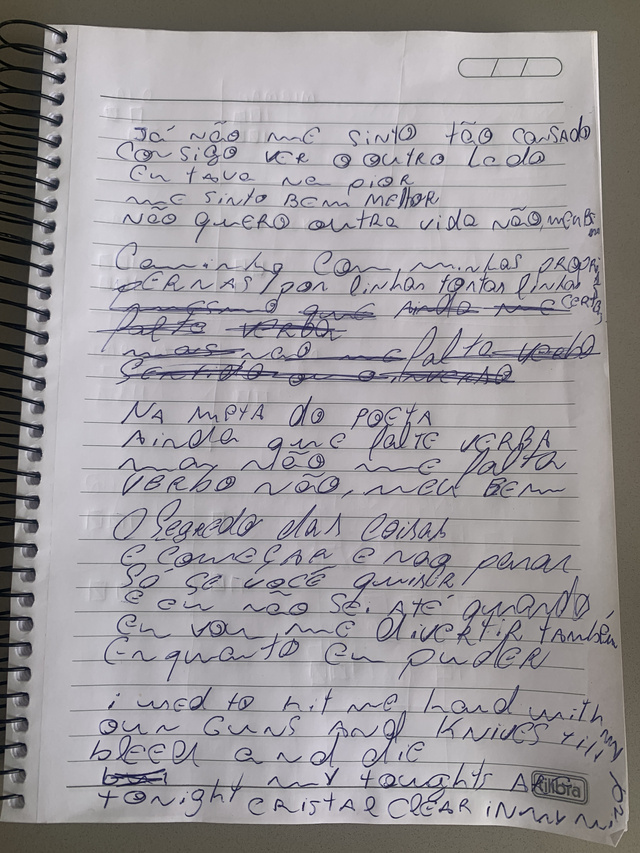 Já não me sinto tão cansado
Consigo ver o outro lado
Eu tava na pior
me sinto bem melhor
não quero outra vida não, meu be
m
Caminho com minhas própri
pernas/por linhas tortas linhas
mesmo que ainda me certas
falte verba
mas não me falta verbo
Sentido ou o inverso
Na meta do poeta
Ainda que falte verba
mas não me falta
verbo não, meu bem
O segredo das coisas
é começar e não parar
Só se você quiser
e eu não sei até quando
Eu vou me divertir também
Enquanto eu puder
i used to hit me hard with
our guns and knives till my
bleed and die
my toughts are
tonight cristal clear in my
Jilibra